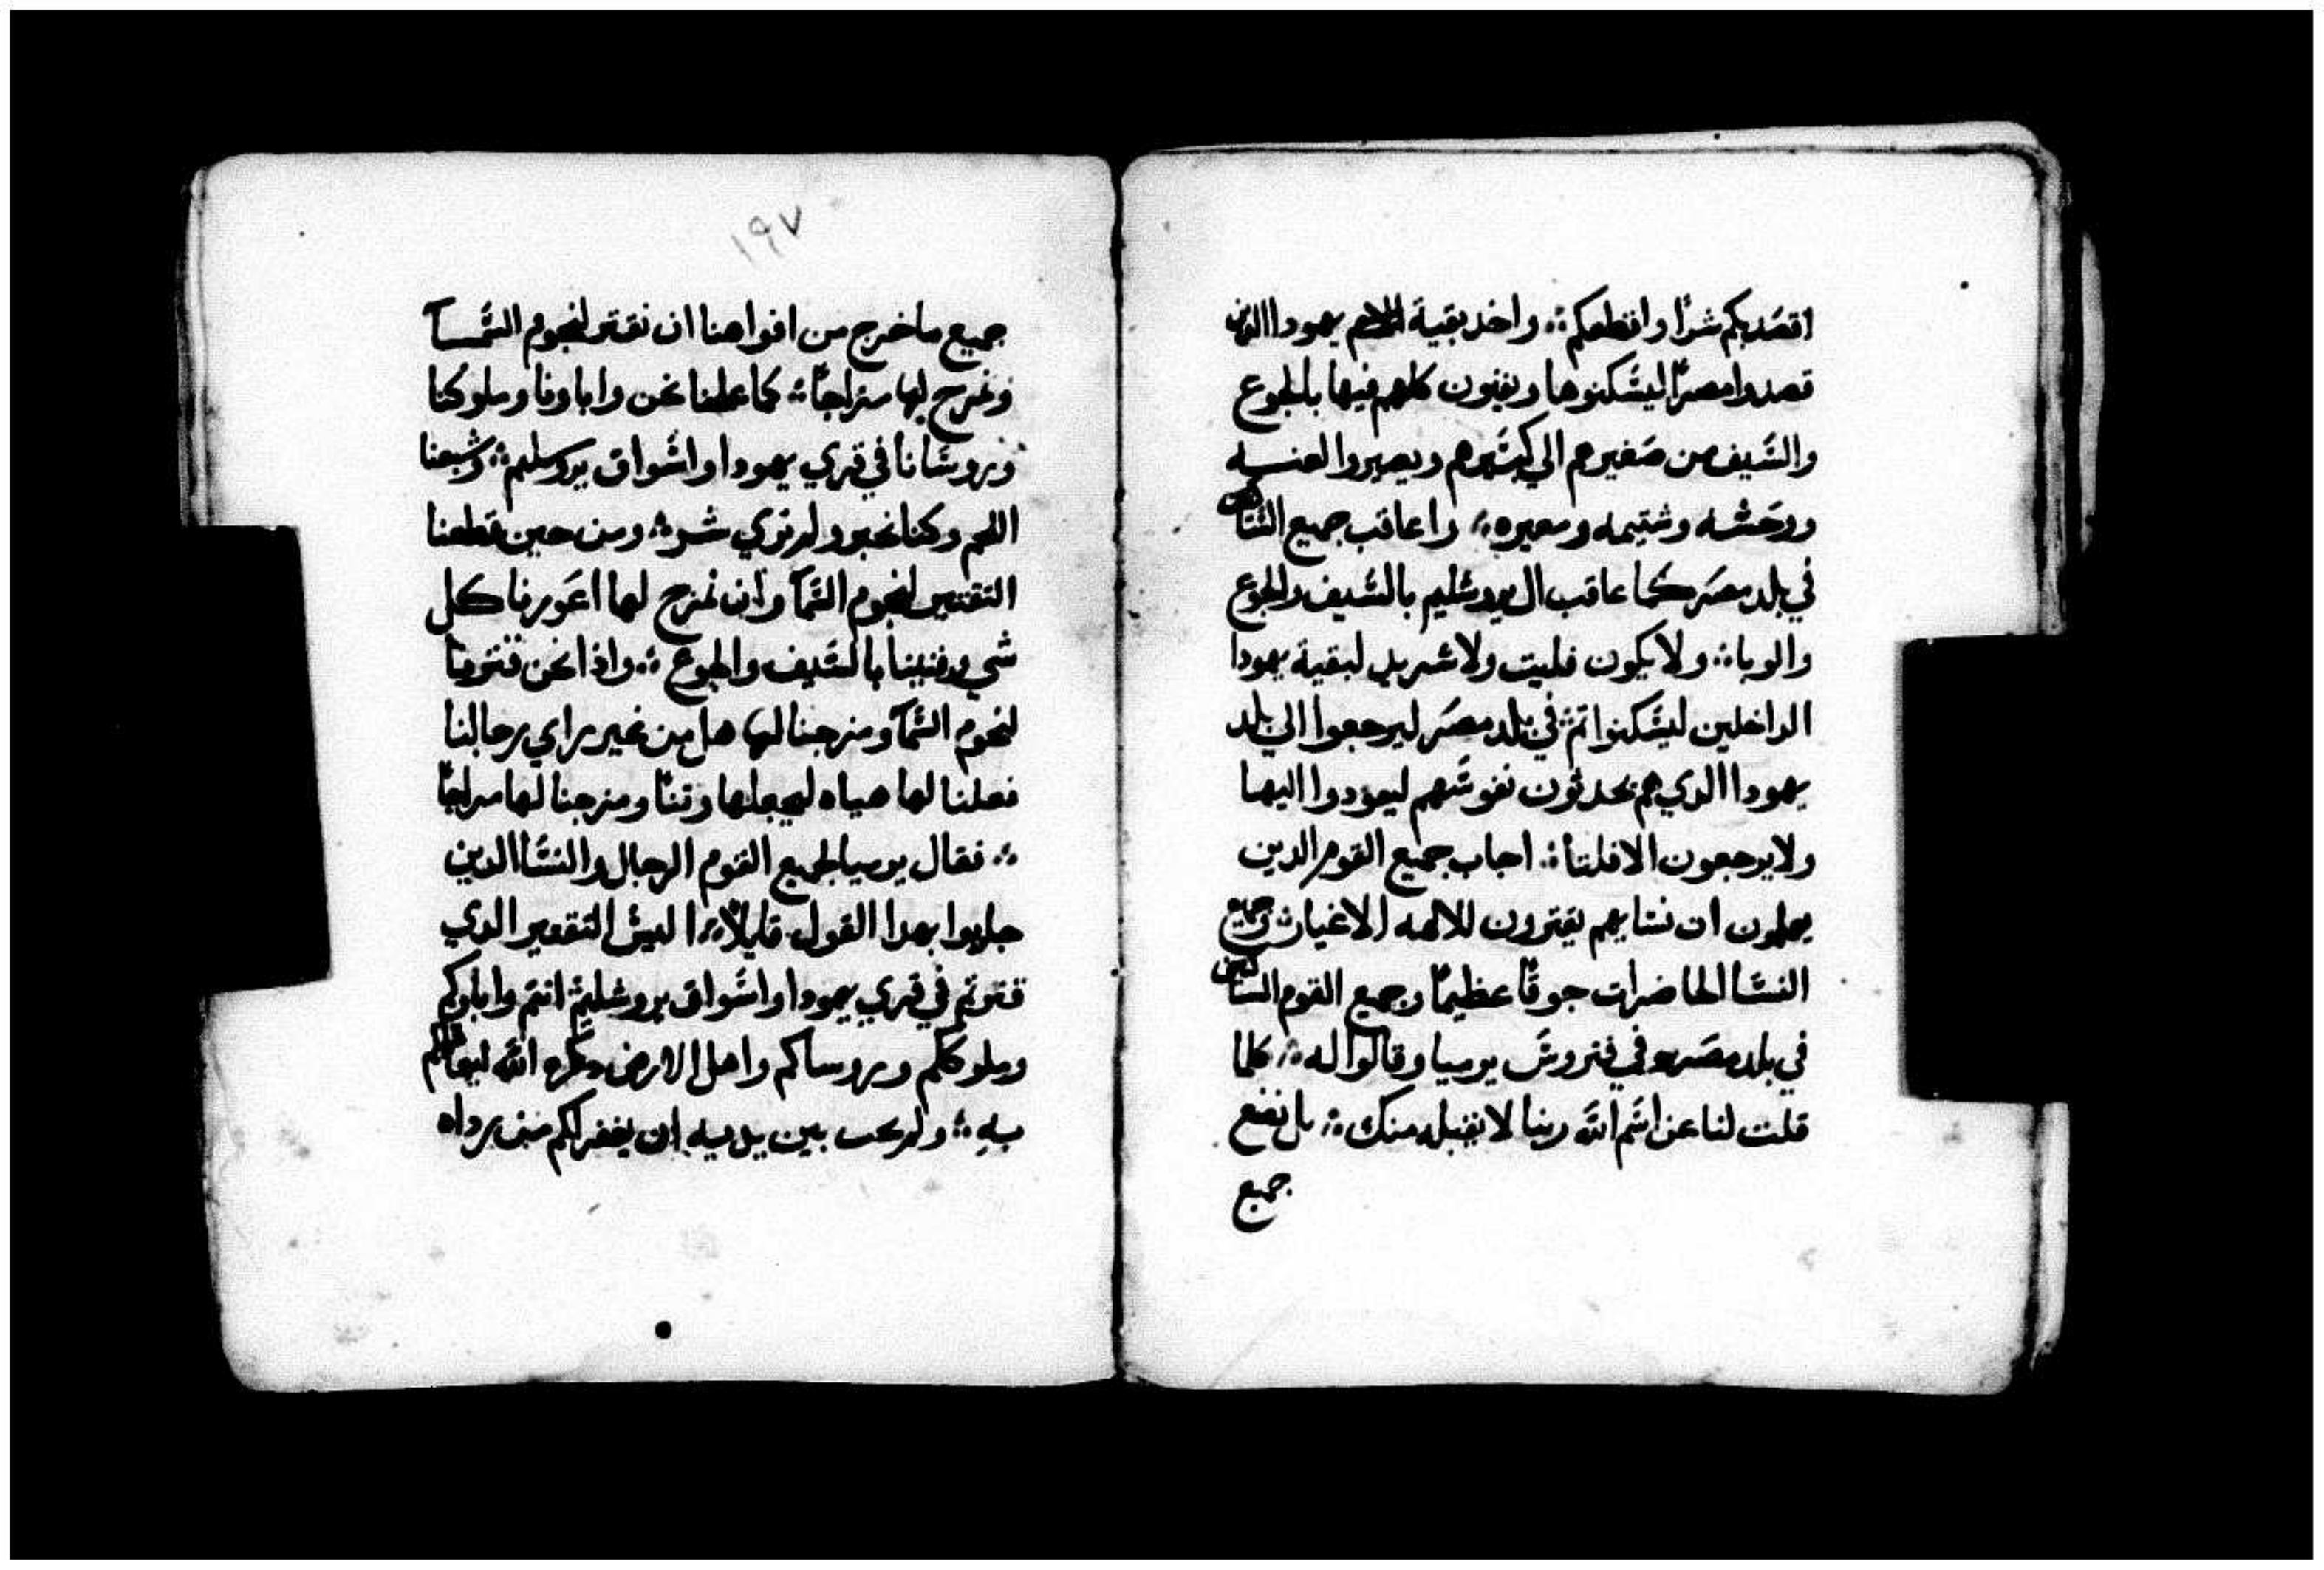 اقصد بكم شرًا واقطعكم ؞ واخد بقية يهودا الدين
قصدوا مصرًا ليسكنوها ويفنون كلهم فيها بالجوع
والسيف من صغيرهم الي كبيرهم ويصيروا لعنه
ووحشه وشتيمه ومعيره ؞ واعاقب جميع الساكنين
في بلد مصر كما عاقب ال يروشليم بالسيف والجوع
والوبا ؞ ولا يكون فليت ولا شريد لبقية يهودا
الداخلين ليسكنوا تم في بلد مصر ليرجعوا الي بلد
يهودا الدي هم يحدثون نفوسهم ليعودوا اليها
ولا يرجعون الا فلتا ؞ اجاب جميع القوم الدين
يعلمون ان نسايهم يقترون للالهه الاغيار وجميع
النسا الحاضرات جوقًا عظيمًا وجميع القوم الساكنين
في بلد مصر وفي فتروس يرميا وقالوا له ؞ كلما
قلت لنا عن اسم الله ربنا لا نقبله منك ؞ بل نضع
جميع
١٩٧
جميع ما خرج من افواهنا ان نقتر لنجوم السما
ونمزج لها مزاجًا ؞ كما عملنا نحن واباونا وملوكنا
وروسانا في قري يهودا واسواق يروسليم ؞ وشبعنا
اللحم وكنا بخير ولم نري شر ؞ ومن حين قطعنا
التقتير لنجوم السما وان نمزج لها اعوزنا كل
شي وفنينا بالسيف والجوع ؞ واذا نحن قترنا
لنجوم السما ومزجنا لها هل من غير راي رجالنا
فعلنا لها هياه ليجعلها وتنًا ومزجنا لها مزاجًا
؞ فقال يرميا لجميع القوم الرجال والنسا الدين
جاوبوا بهدا القول قايلًا ؞ اليس التقتير الدي
قترتم في قري يهودا واسواق يروشليم انتم واباوكم
وملوككم وروساكم واهل الارض الله
به ؞ ولم بين يديه ان يغفر لكم